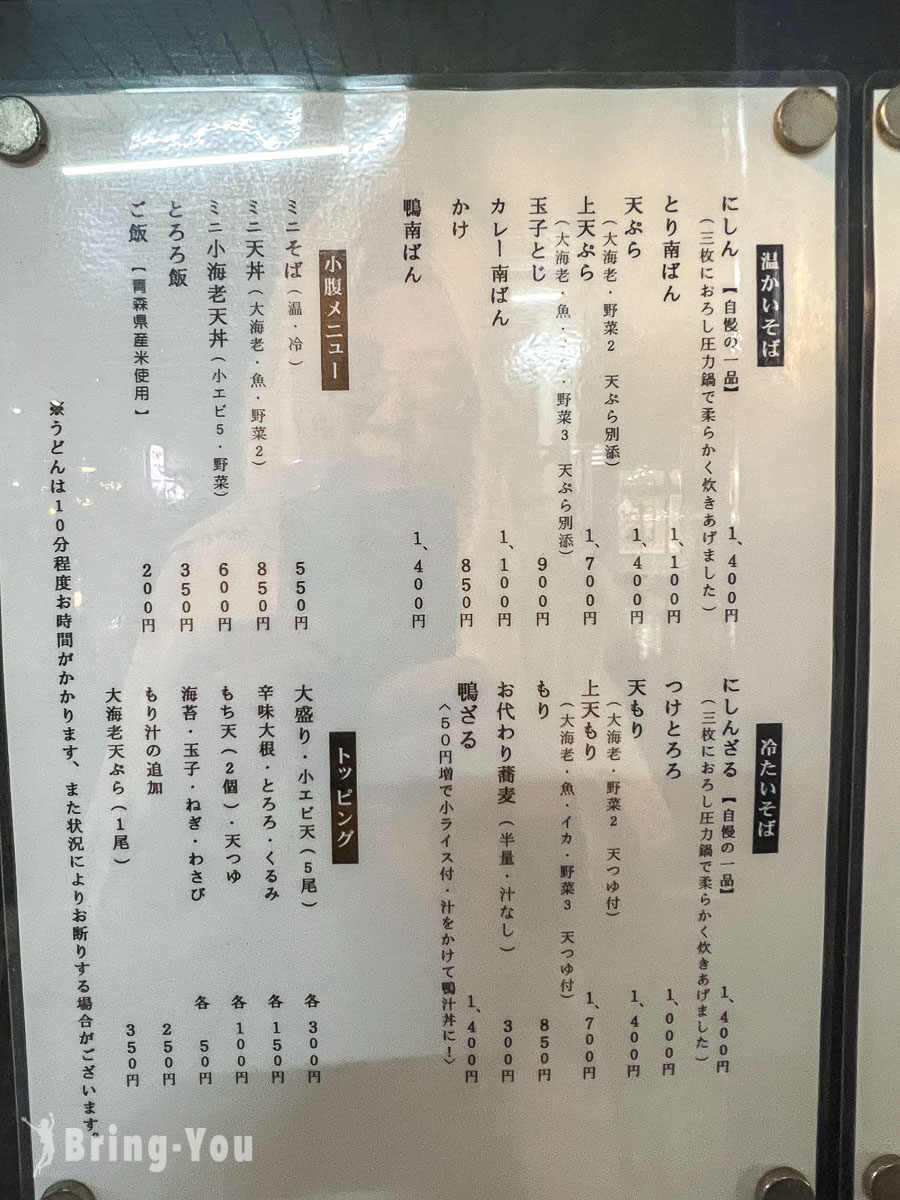 温かいそば
にしん 【自慢の一品】 1、400円
（三枚におろし圧力鍋で柔らかく炊きあげました）
とり南ばん 1、100円
天ぷら 1、400円
（大海老・野菜2 天ぷら別添）
上天ぷら 1、700円
（大海老・魚・・・野菜3 天ぷら別添）
玉子とじ 900円
カレー南ばん 1、100円
かけ 850円
鴨南ばん 1、400円
冷たいそば
にしんざる 【自慢の一品】 1、400円
（三枚におろし圧力鍋で柔らかく炊きあげました）
つけとろろ 1、000円
天もり 1、400円
（大海老・野菜2 天つゆ付）
上天もり 1、700円
（大海老・魚・イカ・野菜3 天つゆ付）
もり 850円
お代わり蕎麦（半量・汁なし） 300円
鴨ざる 1、400円
〈50円増で小ライス付・汁をかけて鴨汁丼に！〉
小腹メニュー
ミニそば（温・冷） 550円
ミニ天丼（大海老・魚・野菜2） 850円
ミニ小海老天丼（小エビ5・野菜） 600円
とろろ飯 350円
ご飯 【青森県産米使用】 200円
トッピング
大盛り・小エビ天（5尾） 各300円
辛味大根・とろろ・くるみ 各150円
もち天（2個）・天つゆ 各100円
海苔・玉子・ねぎ・わさび 各50円
もり汁の追加 250円
大海老天ぷら（1尾） 350円
※うどんは10分程度お時間がかかります、また状況によりお断りする場合がございます。
Bring-You